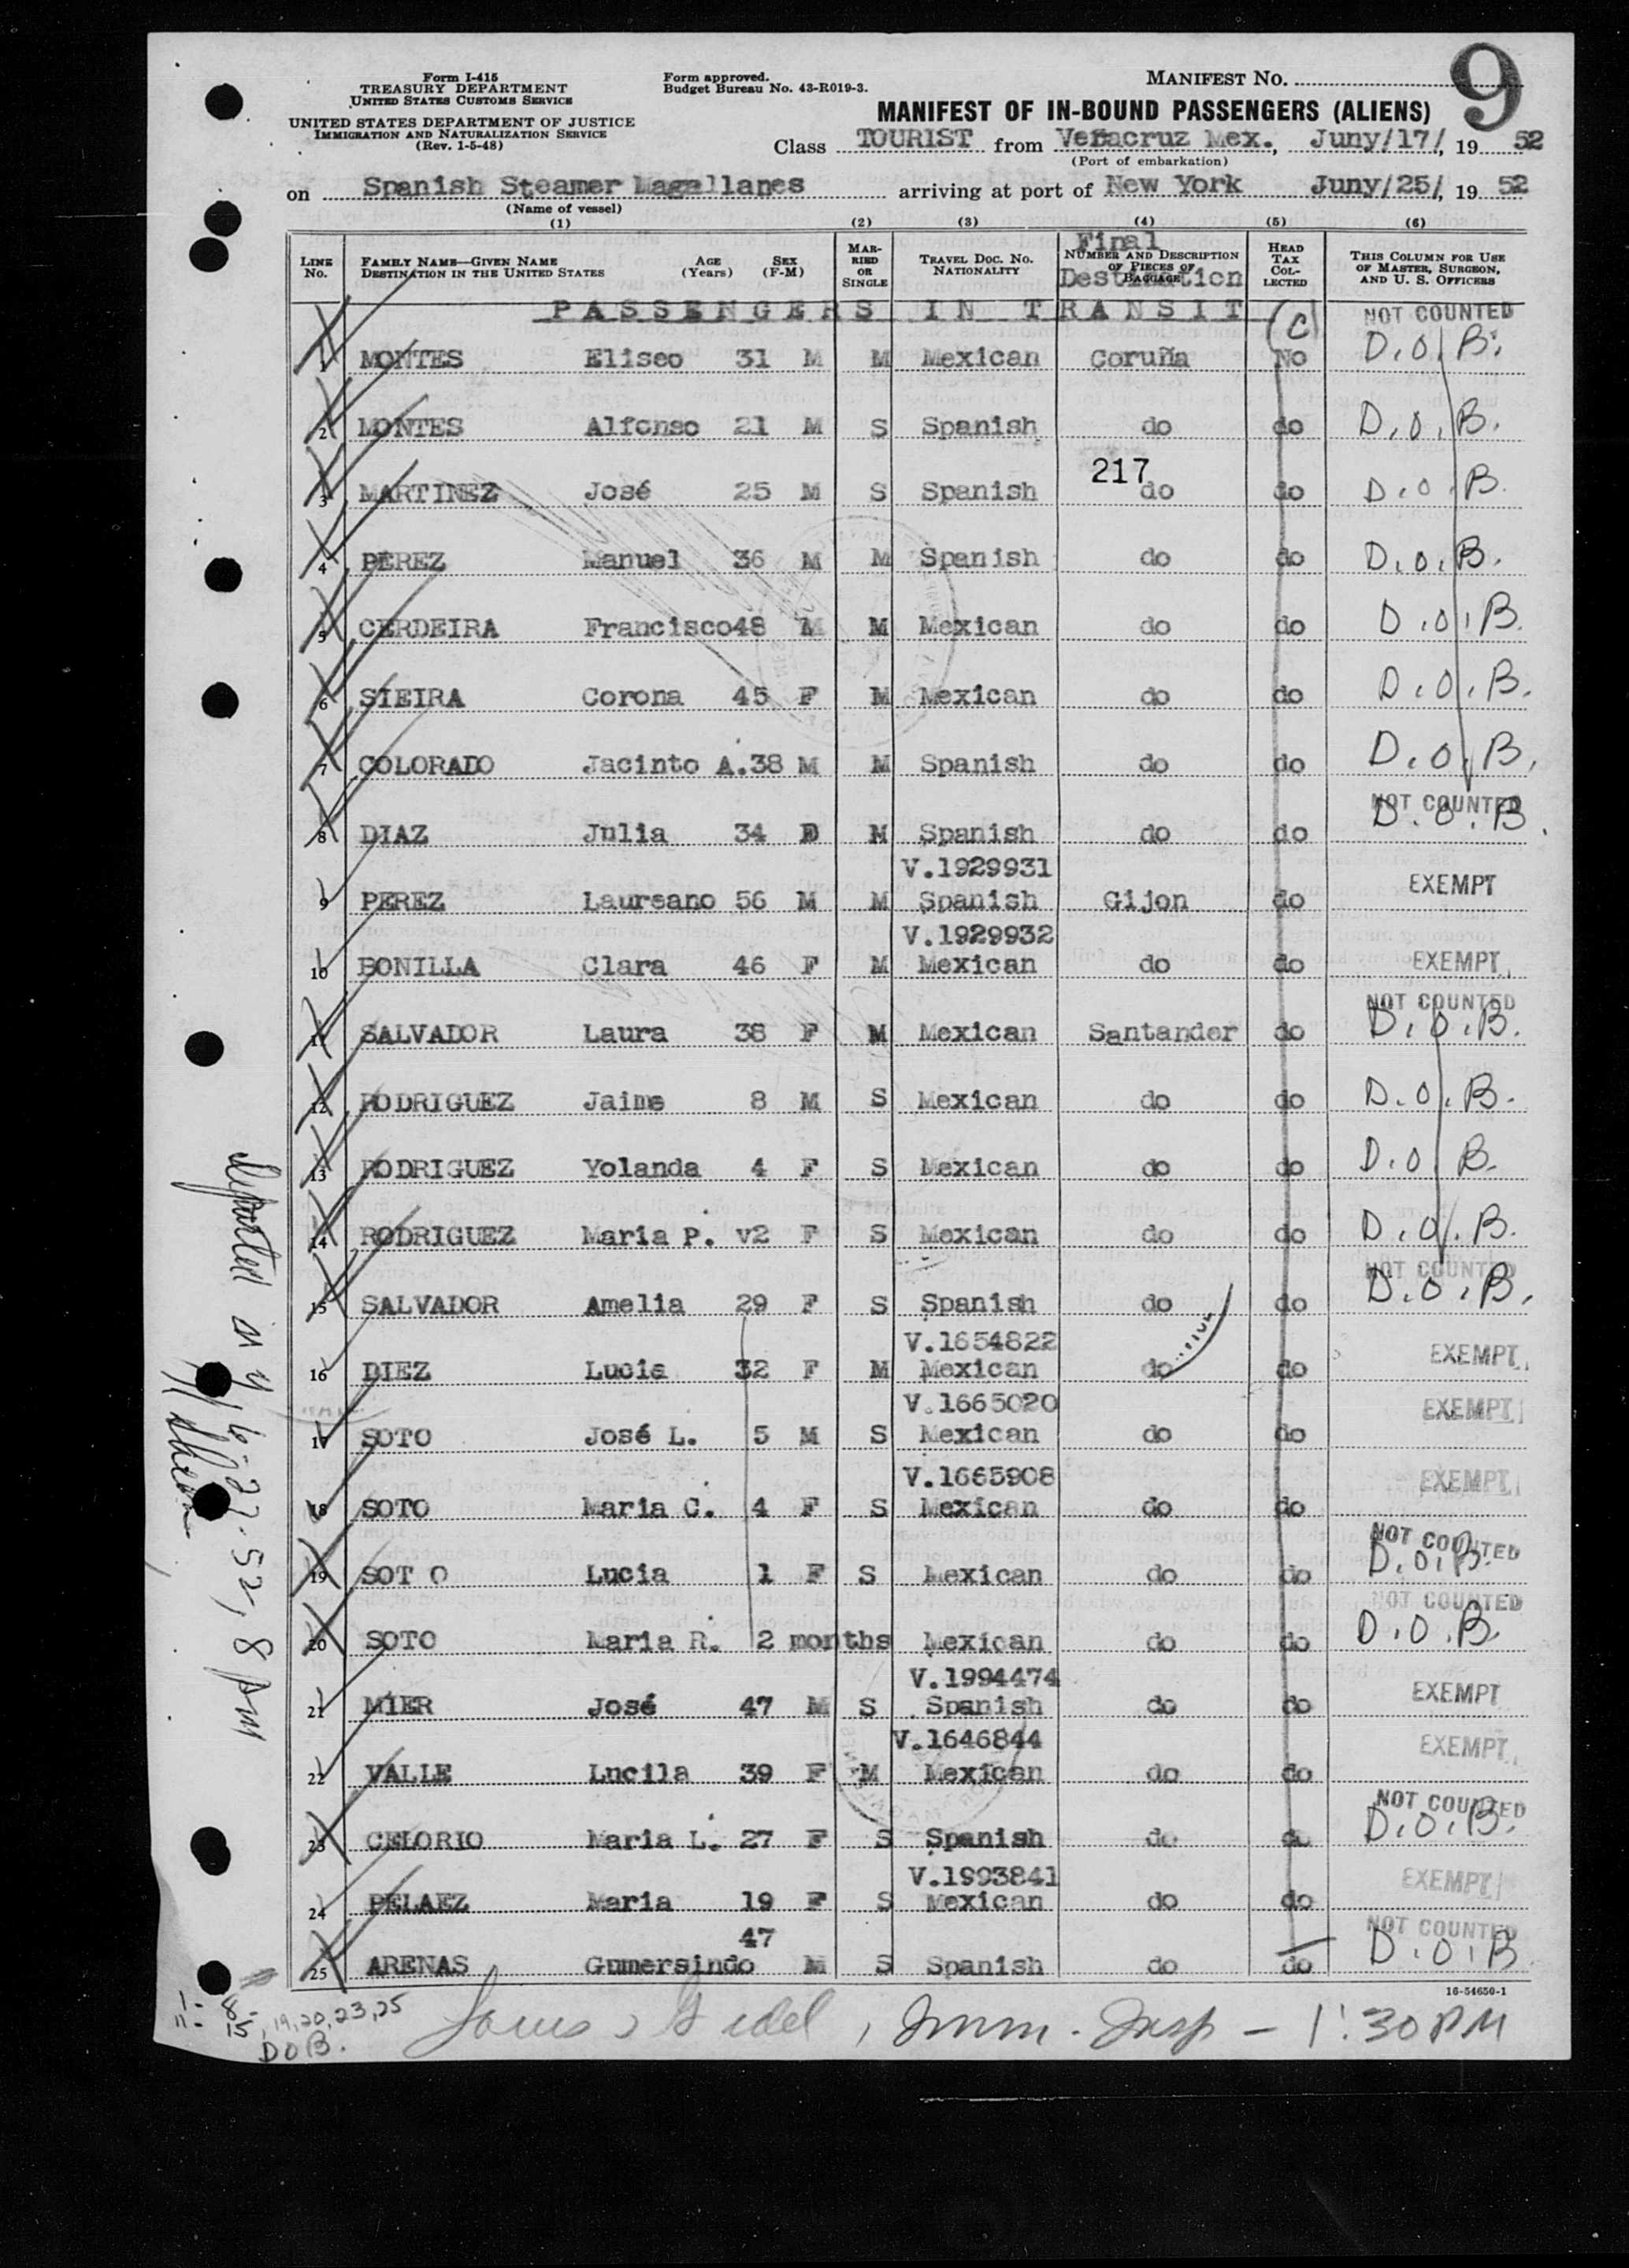 Form I-415
TREASURY DEPARTMENT
UNITED STATES CUSTOMS SERVICE
UNITED STATES DEPARTMENT OF JUSTICE
IMMIGRATION AND NATURALIZATION SERVICE
(Rev. 1-5-48)
Form approved.
Budget Bureau No. 43-R019-3.
MANIFEST No. 9
MANIFEST OF IN-BOUND PASSENGERS (ALIENS)
Class TOURIST from Veracruz Mex., Juny/17/, 19 52
(Port of embarkation)
on Spanish Steamer Magallanes arriving at port of New York Juny/25/, 19 52
(Name of vessel)
(1) (2) (3) (4) (5) (6)
LINE No. FAMILY NAME—GIVEN NAME DESTINATION IN THE UNITED STATES AGE (Years) SEX (F-M) MARRIED OR SINGLE TRAVEL DOC. NO. NATIONALITY NUMBER AND DESCRIPTION OF PIECES OF BAGGAGE Final Destination HEAD TAX COLLECTED THIS COLUMN FOR USE OF MASTER, SURGEON, AND U. S. OFFICERS
PASSENGERS IN TRANSIT (C) NOT COUNTED
1 MONTES Eliseo 31 M M Mexican Coruña No D.O.B.
2 MONTES Alfonso 21 M S Spanish do do D.O.B.
217
3 MARTINEZ José 25 M S Spanish do do D.O.B.
4 PEREZ Manuel 36 M M Spanish do do D.O.B.
5 CERDEIRA Francisco 48 M M Mexican do do D.O.B.
6 SIEIRA Corona 45 F M Mexican do do D.O.B.
7 COLORADO Jacinto A. 38 M M Spanish do do D.O.B.
NOT COUNTED
8 DIAZ Julia 34 D M Spanish do do D.O.B.
V.1929931
9 PEREZ Laureano 56 M M Spanish Gijon do EXEMPT
V.1929932
10 BONILLA Clara 46 F M Mexican do do EXEMPT
NOT COUNTED
11 SALVADOR Laura 38 F M Mexican Santander do D.O.B.
12 RODRIGUEZ Jaime 8 M S Mexican do do D.O.B.
13 RODRIGUEZ Yolanda 4 F S Mexican do do D.O.B.
14 RODRIGUEZ Maria P. v2 F S Mexican do do D.O.B.
NOT COUNTED
15 SALVADOR Amelia 29 F S Spanish do do D.O.B.
V.1654822
16 DIEZ Lucia 32 F M Mexican do do EXEMPT
V.1665020
17 SOTO José L. 5 M S Mexican do do EXEMPT
V.1665908
18 SOTO Maria C. 4 F S Mexican do do EXEMPT
NOT COUNTED
19 SOT O Lucia 1 F S Mexican do do D.O.B.
NOT COUNTED
20 SOTO Maria R. 2 months Mexican do do D.O.B.
V.1994474
21 MIER José 47 M S Spanish do do EXEMPT
V.1646844
22 VALLE Lucila 39 F M Mexican do do EXEMPT
NOT COUNTED
23 CELORIO Maria L. 27 F S Spanish do do D.O.B.
V.1993841
24 PELAEZ Maria 19 F S Mexican do do EXEMPT
47 NOT COUNTED
25 ARENAS Gumersindo M S Spanish do do D.O.B
16-54650-1
1-8-
11-15, 19,20,23,25
DOB.
Imm. Insp – 1:30 PM
Departed N Y 6-27-52, 8 pm